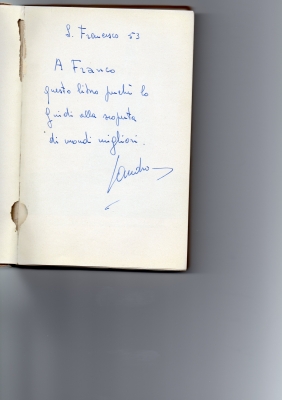 S. Francesco 53
A Franco
questo libro perchè lo
guidi alla scoperta
di mondi migliori.
Sandro